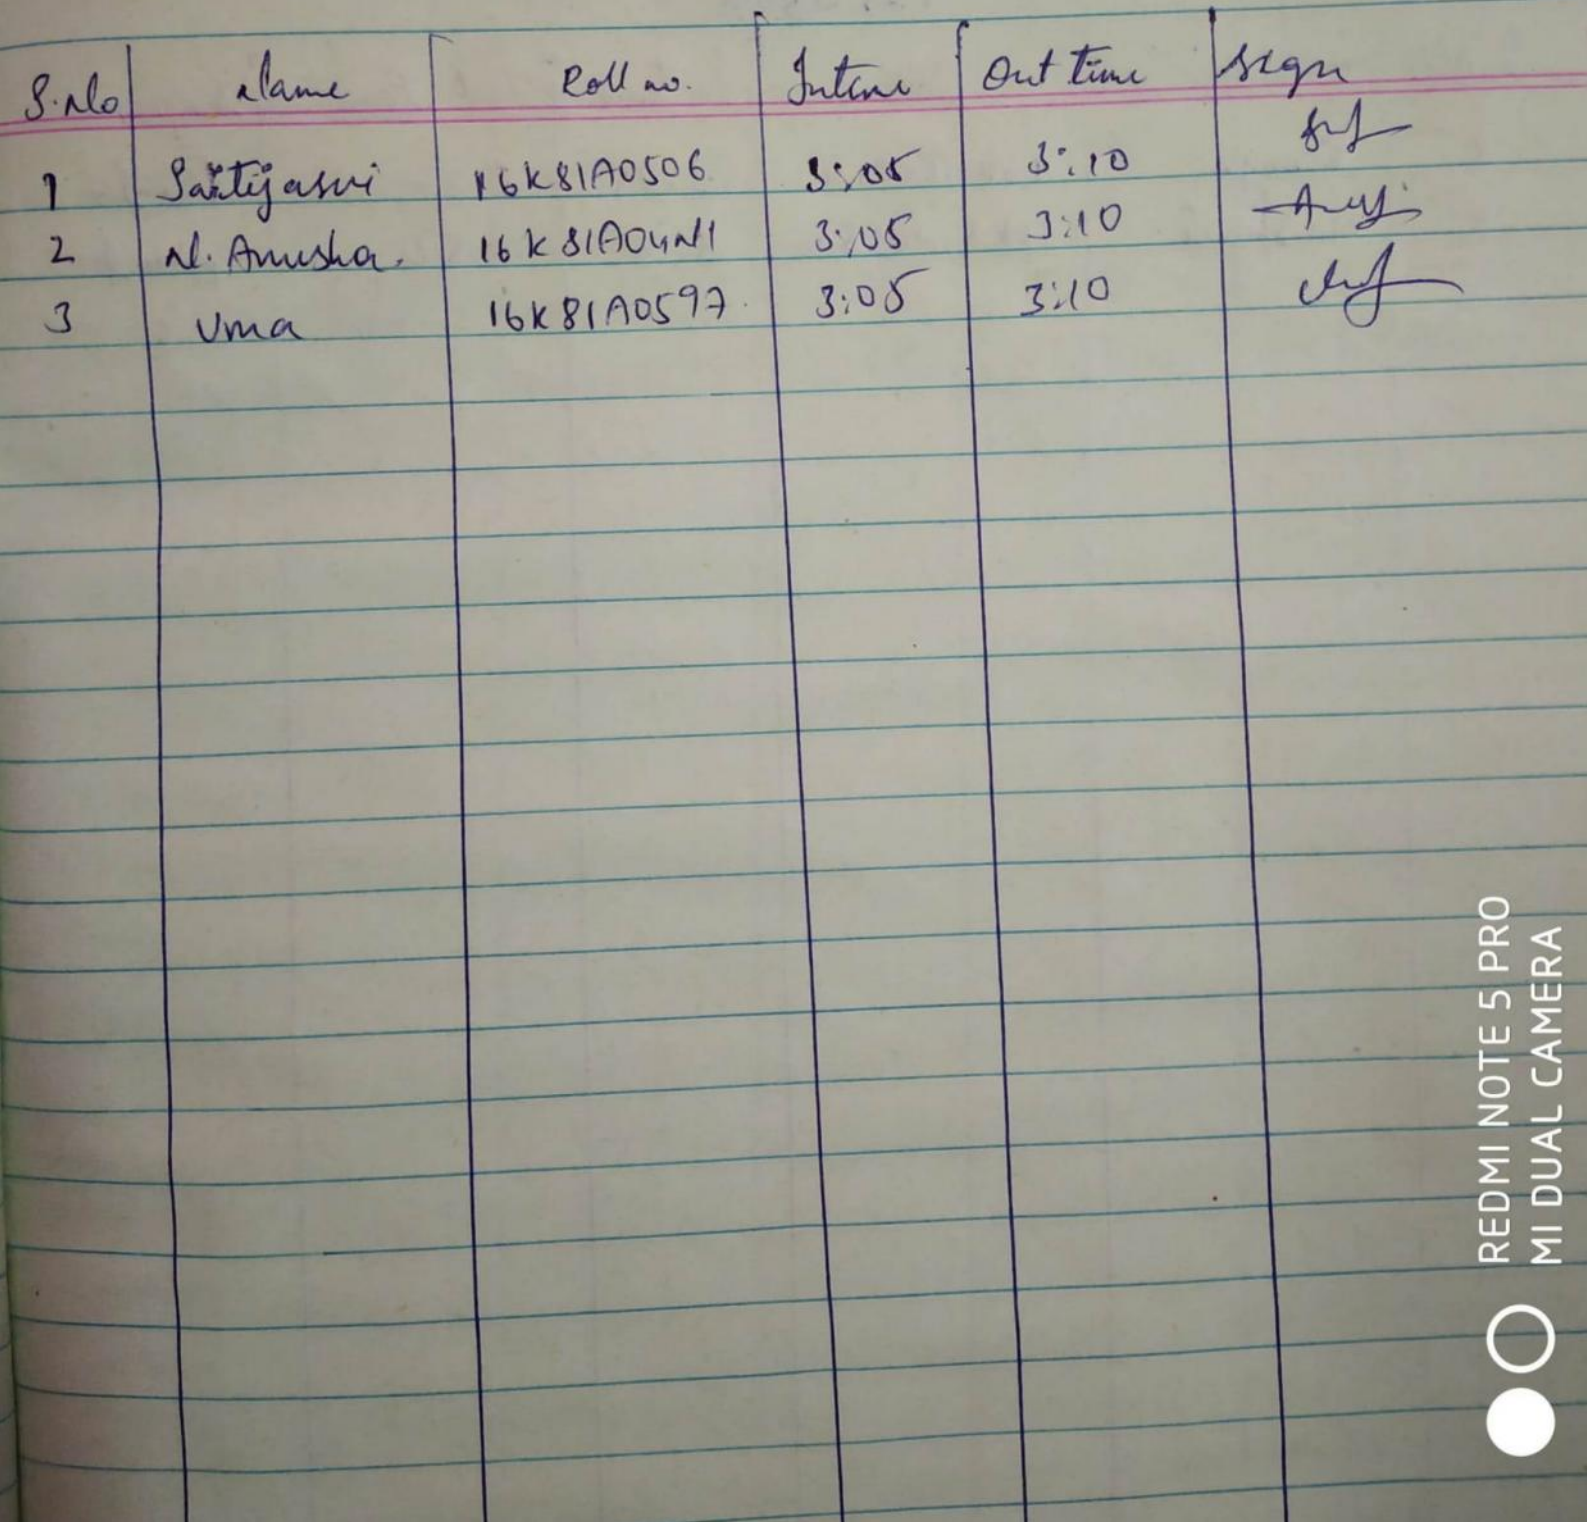 S.No Name Roll no. Intime Out time sign
1 Saitejasvi 16K81A0506 3:05 3:10
2 N. Anusha. 16K81A04N1 3:05 3:10
3 Uma 16K81A0597 3:05 3:10
REDMI NOTE 5 PRO
MI DUAL CAMERA